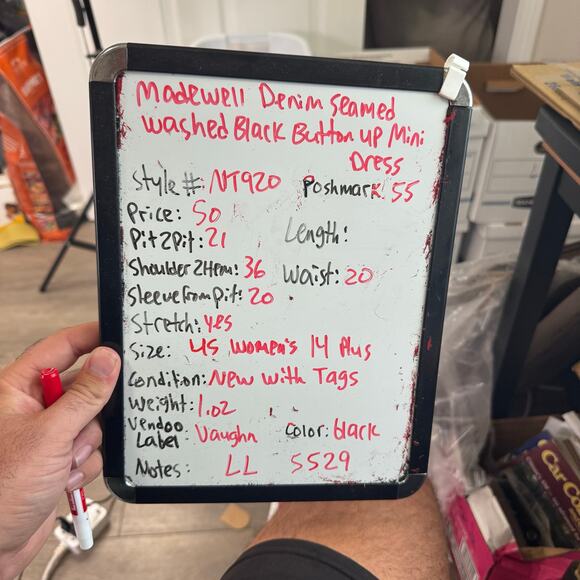 Madewell Denim Seamed
Washed Black Button up Mini
Dress
Style #: NT920 Poshmark 55
Price: 50
Pit2Pit: 21 Length:
Shoulder2Hem: 36 Waist: 20
Sleeve From Pit: 20
Stretch: yes
Size: US Women's 14 Plus
Condition: New with Tags
Weight: 1.02
Vendoo
Label: Vaughn Color: black
Notes: LL 5529